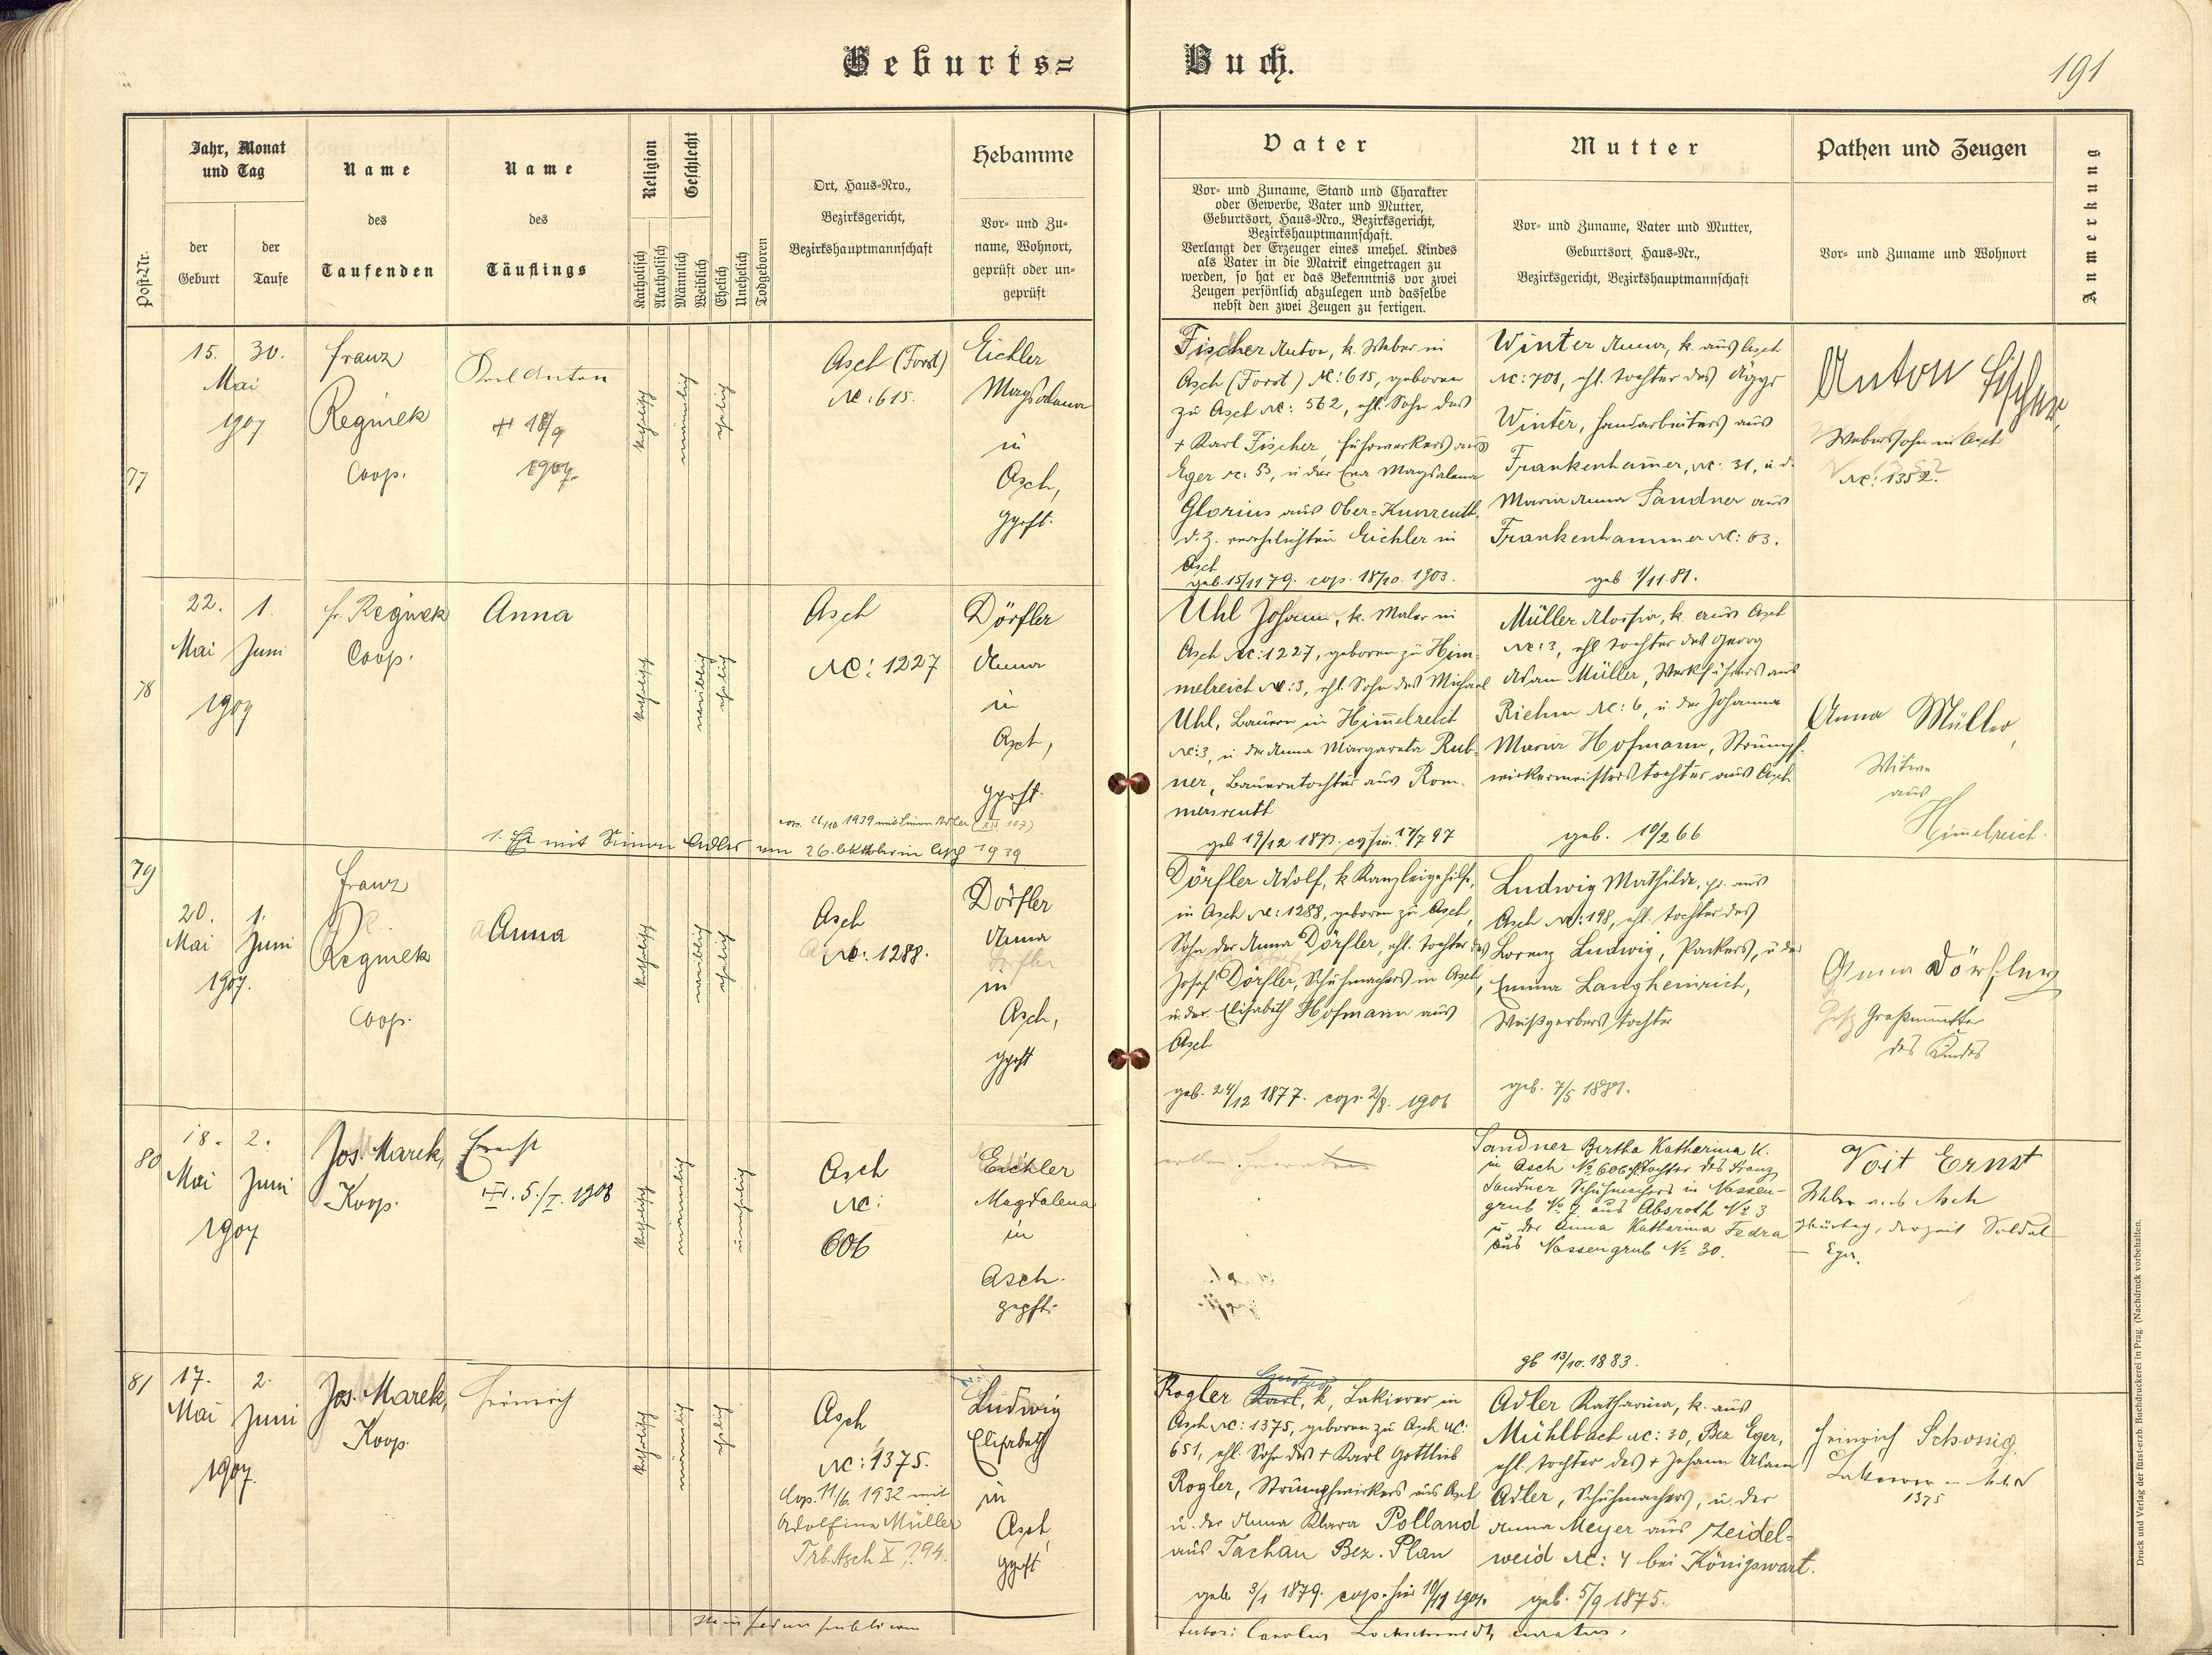 Geburts=
Buch.
191
Post-Nr.
Jahr, Monat
und Tag
der
Geburt
der
Taufe
Name
des
Taufenden
Name
des
Täuflings
Religion
Katholisch
Akatholisch
Geschlecht
Männlich
Weiblich
Ehelich
Unehelich
Todgeboren
Ort, Haus-Nro.,
Bezirksgericht,
Bezirkshauptmannschaft
Hebamme
Vor- und Zu-
name, Wohnort,
geprüft oder un-
geprüft
Vater
Vor- und Zuname, Stand und Charakter
oder Gewerbe, Vater und Mutter,
Geburtsort, Haus-Nro., Bezirksgericht,
Bezirkshauptmannschaft.
Verlangt der Erzeuger eines unehel. Kindes
als Vater in die Matrik eingetragen zu
werden, so hat er das Bekenntnis vor zwei
Zeugen persönlich abzulegen und dasselbe
nebst den zwei Zeugen zu fertigen.
Mutter
Vor- und Zuname, Vater und Mutter,
Geburtsort, Haus-Nr.,
Bezirksgericht, Bezirkshauptmannschaft
Pathen und Zeugen
Vor- und Zuname und Wohnort
Anmerkung
77
15. 30.
Mai
1907
Franz
Reginek
Coop.
Karl Anton
1907.
katholisch
männlich
ehelich
Asch (Forst)
Nc: 615.
Eichler
Magdalena
in
Asch,
gprft.
Fischer Anton, k. Weber in
Asch (Forst) Nc: 615, geboren
zu Asch Nc: 562, ehl. Sohn des
+ Karl Fischer, Fuhrwerkers aus
Eger Nc: 53, u. der Eva Magdalena
Glorius aus Ober-Kunreuth,
d. z. verehelichten Eichler in
Asch
geb. 15/11 79. cop. 18/10. 1903.
Winter Anna, k. aus Asch
Nc: 701, ehl. Tochter des
Winter, Handarbeiters aus
Frankenhammer, Nc: 31, u. d.
Maria Anna Sandner aus
Frankenhammer Nc: 63.
geb. 1/11. 81.
Anton Fischer,
Weberssohn in Asch
Nc: 1352.
78
22. 1.
Mai Juni
1907
Fr. Reginek
Coop.
Anna
katholisch
weiblich
ehelich
Asch
Nc: 1227
Dörfler
Anna
in
Asch,
gprft.
1939 mit Simon Adler
1. Ehe mit Simon Adler am 26. Oktober in Asch 1939
Uhl Johann, k. Maler in
Asch Nc: 1227, geboren zu Him-
melreich Nc: 3, ehl. Sohn des Michael
Uhl, Bauern in Himmelreich
Nc: 3, u. der Anna Margareta Rub-
ner, Bauerntochter aus Rom-
mersreuth
geb 19/12 187 17/7 97
Müller Aloisia, k. aus Asch
Nc: 3, ehl. Tochter des Georg
Adam Müller, Werkführers aus
Riehm Nc: 6, u. der Johanna
Maria Hofmann, Strumpf-
wirkermeisterstochter aus Asch
geb. 10/2 66
Anna Müller,
Witwe
aus
Himmelreich.
79
20. 1.
Mai Juni
1907.
Franz
Reginek
Coop.
Anna
katholisch
weiblich
ehelich
Asch
Nc: 1288.
Dörfler
Anna
in
Asch,
gprft
Dörfler Adolf, k. Kanzleigehilfe,
in Asch Nc: 1288, geboren zu Asch,
Sohn der Anna Dörfler, ehl. Tochter des
Josef Dörfler, Schuhmachers in Asch,
u. der Elisabeth Hofmann aus
Asch
geb. 24/12 1877. cop. 2/8. 1906
Ludwig Mathilde, pr. aus
Asch Nc: 198, ehl. Tochter des
Lorenz Ludwig, Packers, u. der
Emma Langheinrich,
Weißgerbers Tochter
geb. 7/5 1881.
Anna Dörfler
Großmutter
des Kindes
80
18. 2.
Mai Juni
1907
Jos. Marek,
Koop.
Ernst
5./I. 1908
katholisch
männlich
unehelich
Asch
Nc:
606
Eichler
Magdalena
in
Asch.
geprft.
Sandner Bertha Katharina k.
in Asch No 606 Tochter des Franz
Sandner Schuhmachers in Nassen-
grub No 9 aus Absroth No 3
u. der Anna Katharina Fedra
aus Nassengrub No 30.
gb 13/10. 1883.
Voit Ernst
Weber aus Asch
derzeit Soldat
Eger.
81
17. 2.
Mai Juni
1907.
Jos. Marek,
Koop.
Heinrich
katholisch
männlich
ehelich
Asch
Nc: 1375.
Cop. 11/6. 1932 mit
Adolfine Müller
Trb. Asch X, 794.
Ludwig
Elisabeth
in
Asch,
gprft
Rogler Karl, k, Lakierer in
Gustav
Asch Nc: 1375, geboren zu Asch Nc:
651, ehl. Sohn des + Karl Gottlieb
Rogler, Strumpfwirkers aus Asch
u. der Anna Klara Polland
aus Tachau Bez. Plan
geb. 3/1 1879. cop. hier 10/11 1901.
Adler Katharina, k. aus
Mühlbach Nc: 30, Bez Eger,
ehl. Tochter des + Johann Adam
Adler, Schuhmachers, u. der
Anna Meyer aus Zeidel-
weid Nc: 4 bei Königswart.
geb. 5/9 1875.
Heinrich Schonig.
1375
Druck und Verlag der fürst-erzb. Buchdruckerei in Prag. (Nachdruck vorbehalten.